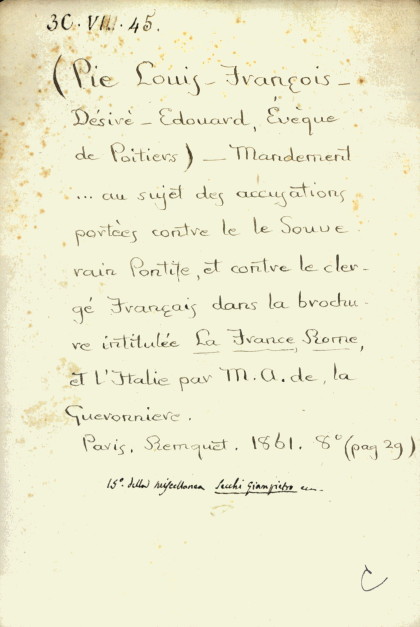 30. VII. 45.
(Pie Louis-François-
Désiré-Edouard, Évêque
de Poitiers) - Mandement
... au sujet des accusations
portées contre le le Souve-
rain Pontife, et contre le cler-
gé Français dans la brochu-
re intitulée La France, Rome,
et l'Italie par M. A. de, la
Gueronniere.
Paris. Remquet. 1861. 8° (pag 29)
15°. della miscellanea Secchi Giampietro
C